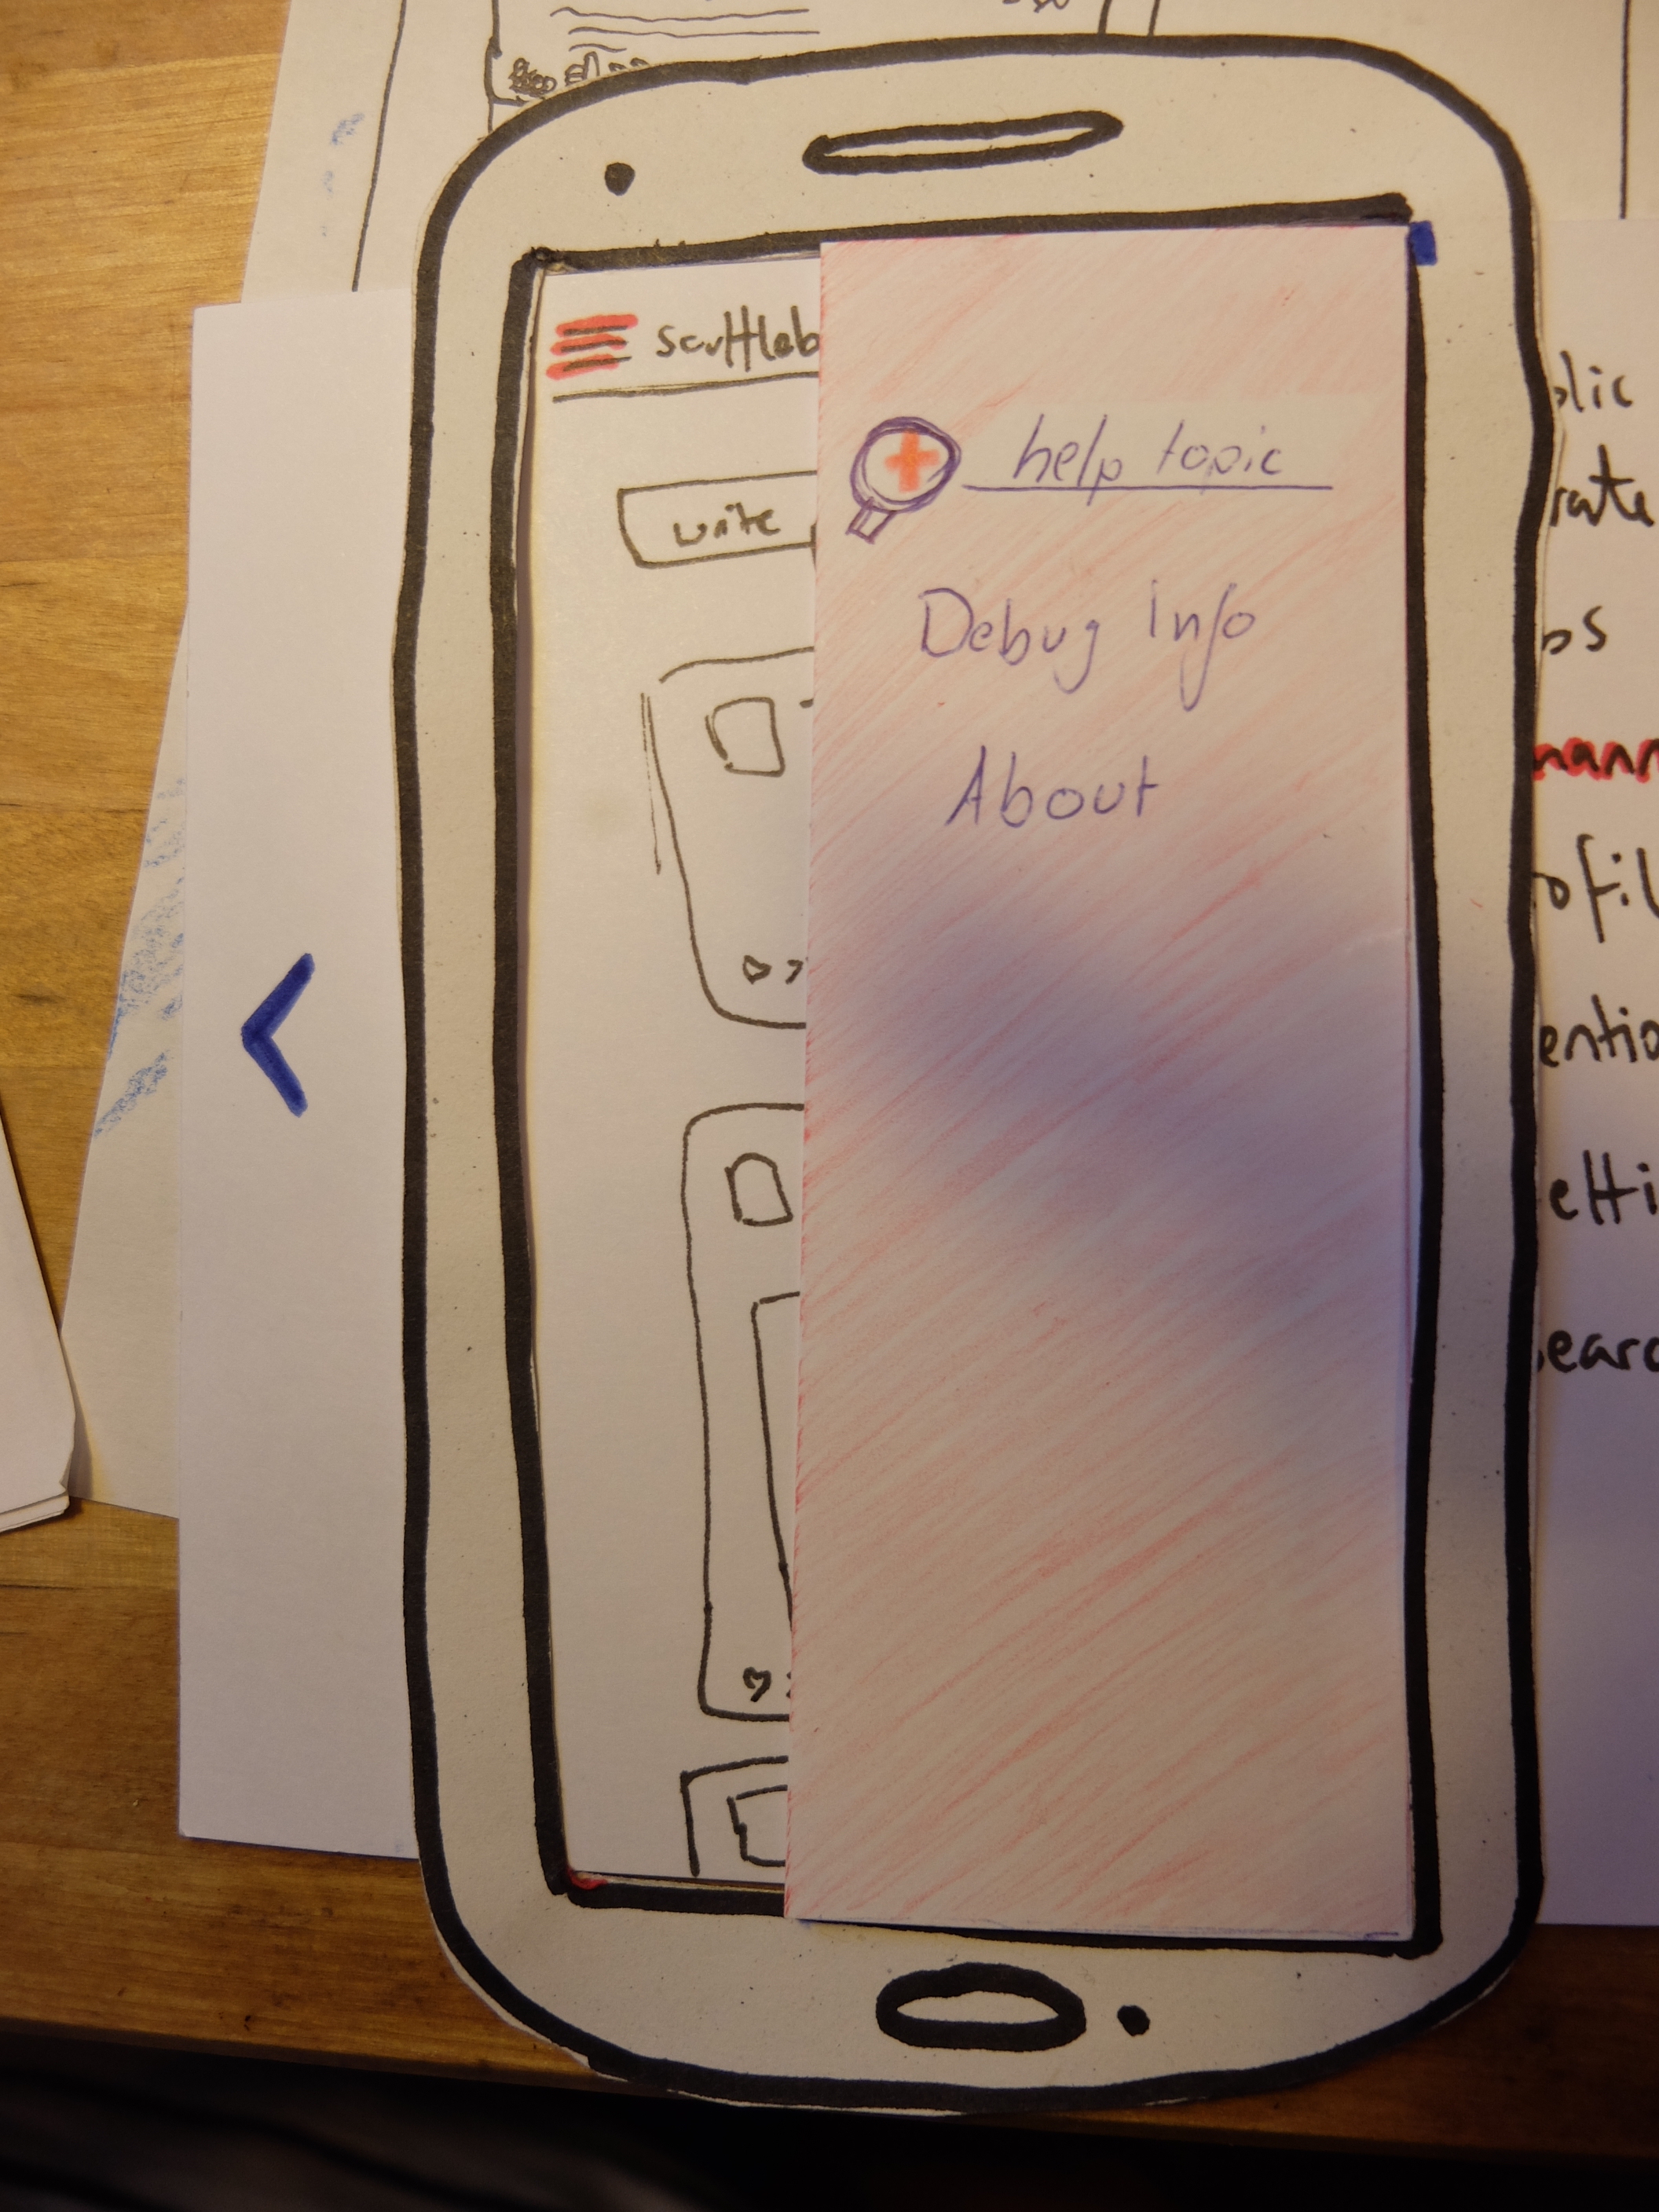 scuttleb
write
help topic
Debug Info
About
blic
rate
bs
mann
ofil
entio
etti
earc